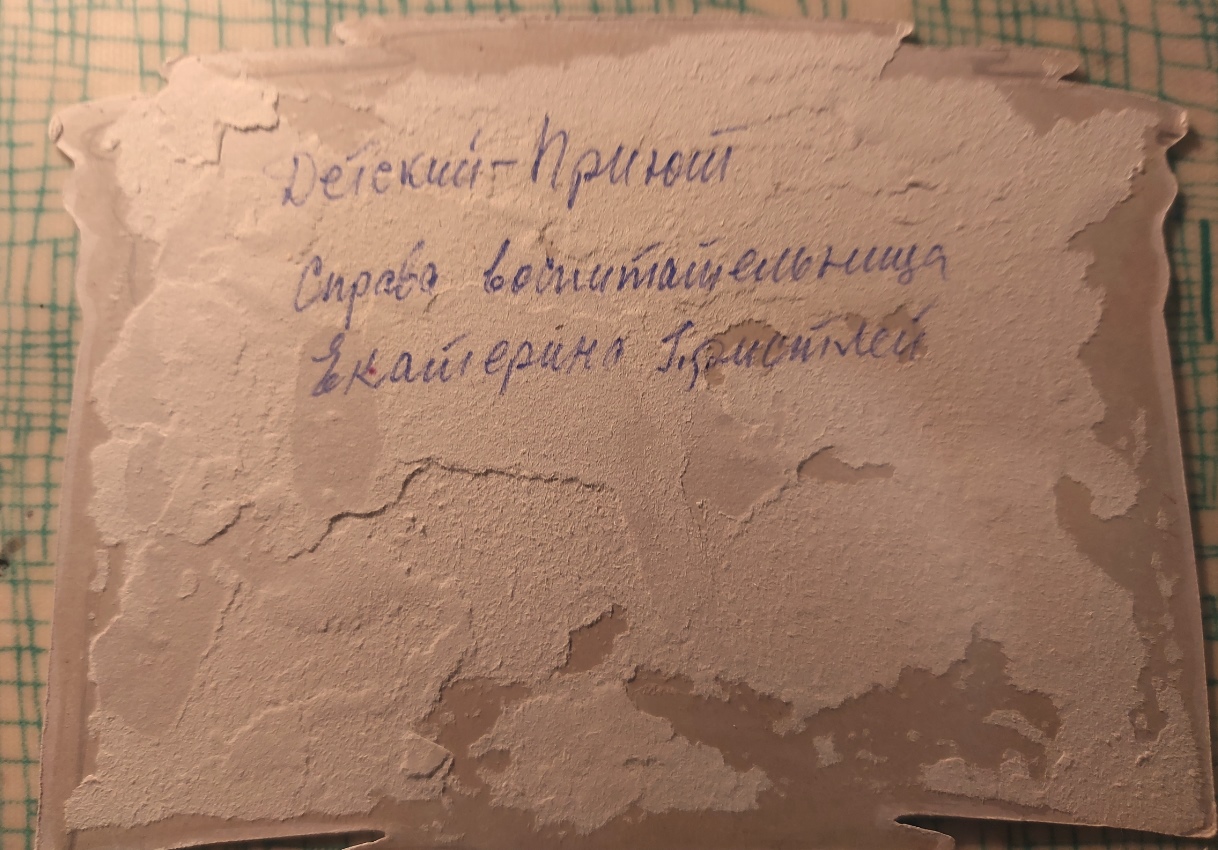 Детский-Приют
Справа воспитательница
Екатерина